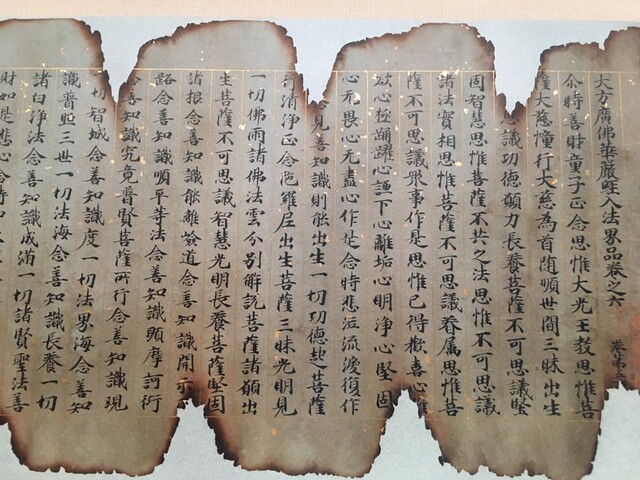 大方廣佛華嚴經入法界品卷之六
尒時善財童子正念思惟大光王教思惟菩
薩大慈幢行大慈為首随順世間三昧出生
思議功德願力長養菩薩不可思議堅
固智慧思惟菩薩不共之法思惟不可思議
諸法實相思惟菩薩不可思議眷属思惟菩
薩不可思議眾事作是思惟已得歡喜心
欲心極踊躍心謙下心離垢心明浄心堅固
心无畏心无盡心作是念時悲泣流淚復作
見善知識則能出生一切功德菩薩
行清淨正念陁羅尼出生菩薩三昧光明見
一切佛雨諸佛法雲分別解説菩薩諸願出
生菩薩不可思議智慧光明長養菩薩堅固
諸根念善知識能離嶮道念善知識開示
路念善知識順平等法念善知識顕摩訶衍
念善知識究竟普賢菩薩所行念善知識現
一切智城念善知識度一切法界海念善知
識普照三世一切法海念善知識長養一切
諸白淨法念善知識成滿一切諸賢聖法善
財如是悲心念時